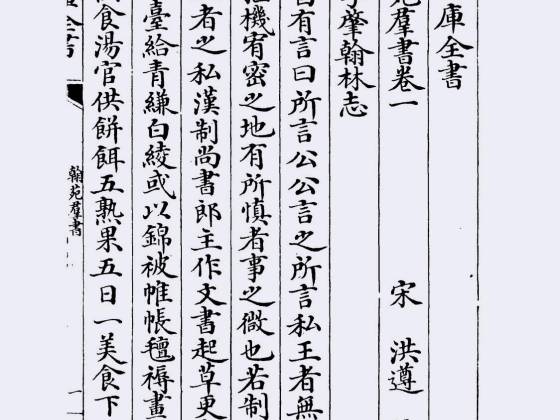 庫全書
苑羣書卷一
宋 洪遵
肇翰林志
有言曰所言公公言之所言私王者無
機宥密之地有所慎者事之微也若制
者之私漢制尚書郎主作文書起草更
臺給青縑白綾或以錦被帷帳氊褥畫
食湯官供餅餌五熟果五日一美食下
翰苑羣書